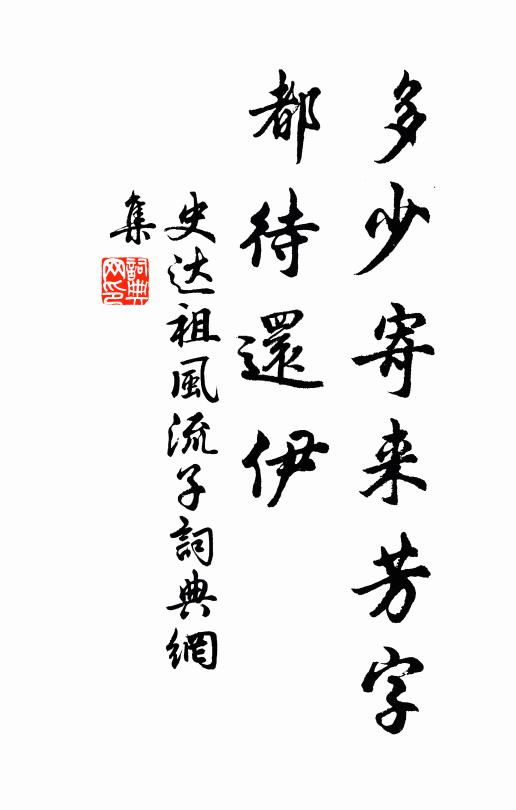 多少寄来芳字
都待還伊
史达祖風流子詞典網
集
詞典网印